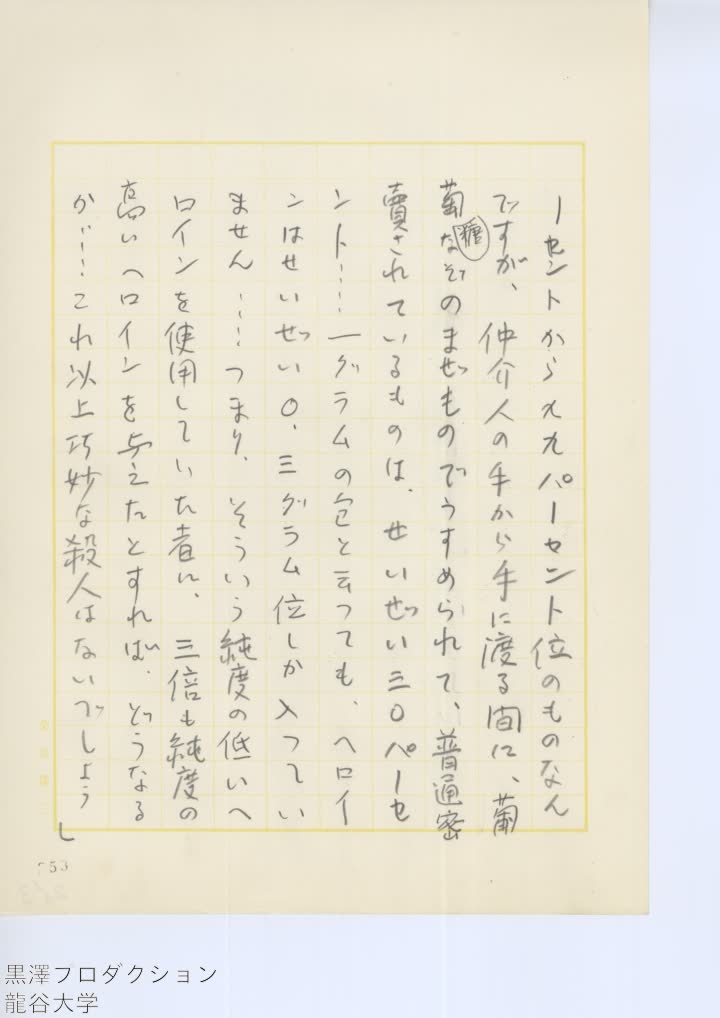 ーセントから九九パーセント位のものなん
ですが、仲介人の手から手に渡る間に、葡
萄糖なぞのまぜものでうすめられて、普通密
賣されているものは、せいぜい三〇パーセ
ント……一グラムの包と云つても、ヘロイ
ンはせいぜい〇、三グラム位しか入つてい
ません……つまり、そういう純度の低いヘ
ロインを使用していた者に、三倍も純度の
高いヘロインを与えたとすれば、どうなる
か……これ以上巧妙な殺人はないでしよう
」
53
黒澤プロダクション
龍谷大学